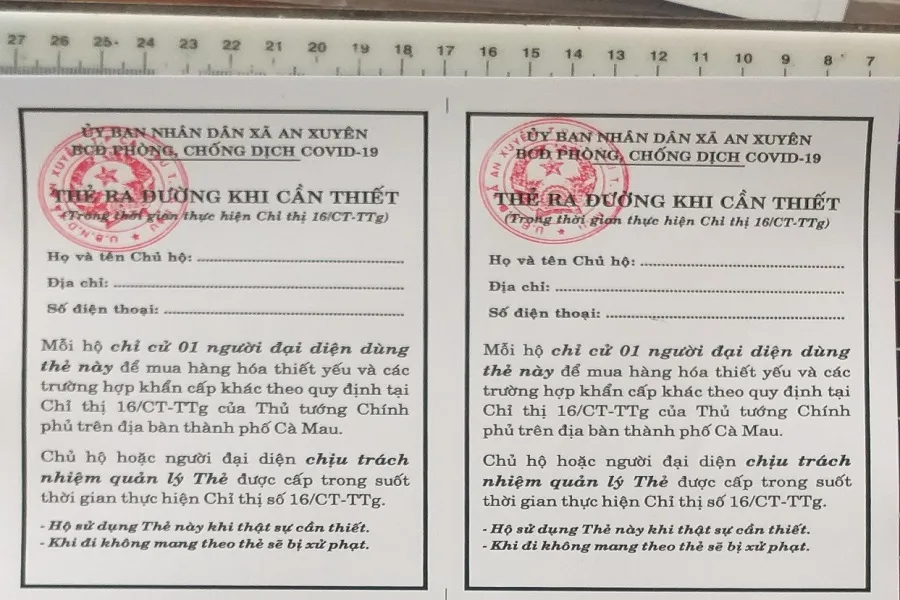 27 26 25 24 23 22 21 20 19 18 17 16 15 14 13 12 11 10 9 8 7
ỦY BAN NHÂN DÂN XÃ AN XUYÊN
BCĐ PHÒNG, CHỐNG DỊCH COVID-19
THẺ RA ĐƯỜNG KHI CẦN THIẾT
(Trong thời gian thực hiện Chỉ thị 16/CT-TTg)
Họ và tên Chủ hộ:
Địa chỉ:
Số điện thoại:
Mỗi hộ chỉ cử 01 người đại diện dùng
thẻ này để mua hàng hóa thiết yếu và các
trường hợp khẩn cấp khác theo quy định tại
Chỉ thị 16/CT-TTg của Thủ tướng Chính
phủ trên địa bàn thành phố Cà Mau.
Chủ hộ hoặc người đại diện chịu trách
nhiệm quản lý Thẻ được cấp trong suốt
thời gian thực hiện Chỉ thị số 16/CT-TTg.
- Hộ sử dụng Thẻ này khi thật sự cần thiết.
- Khi đi không mang theo thẻ sẽ bị xử phạt.
ỦY BAN NHÂN DÂN XÃ AN XUYÊN
BCĐ PHÒNG, CHỐNG DỊCH COVID-19
THẺ RA ĐƯỜNG KHI CẦN THIẾT
(Trong thời gian thực hiện Chỉ thị 16/CT-TTg)
Họ và tên Chủ hộ:
Địa chỉ:
Số điện thoại:
Mỗi hộ chỉ cử 01 người đại diện dùng
thẻ này để mua hàng hóa thiết yếu và các
trường hợp khẩn cấp khác theo quy định tại
Chỉ thị 16/CT-TTg của Thủ tướng Chính
phủ trên địa bàn thành phố Cà Mau.
Chủ hộ hoặc người đại diện chịu trách
nhiệm quản lý Thẻ được cấp trong suốt
thời gian thực hiện Chỉ thị số 16/CT-TTg.
- Hộ sử dụng Thẻ này khi thật sự cần thiết.
- Khi đi không mang theo thẻ sẽ bị xử phạt.